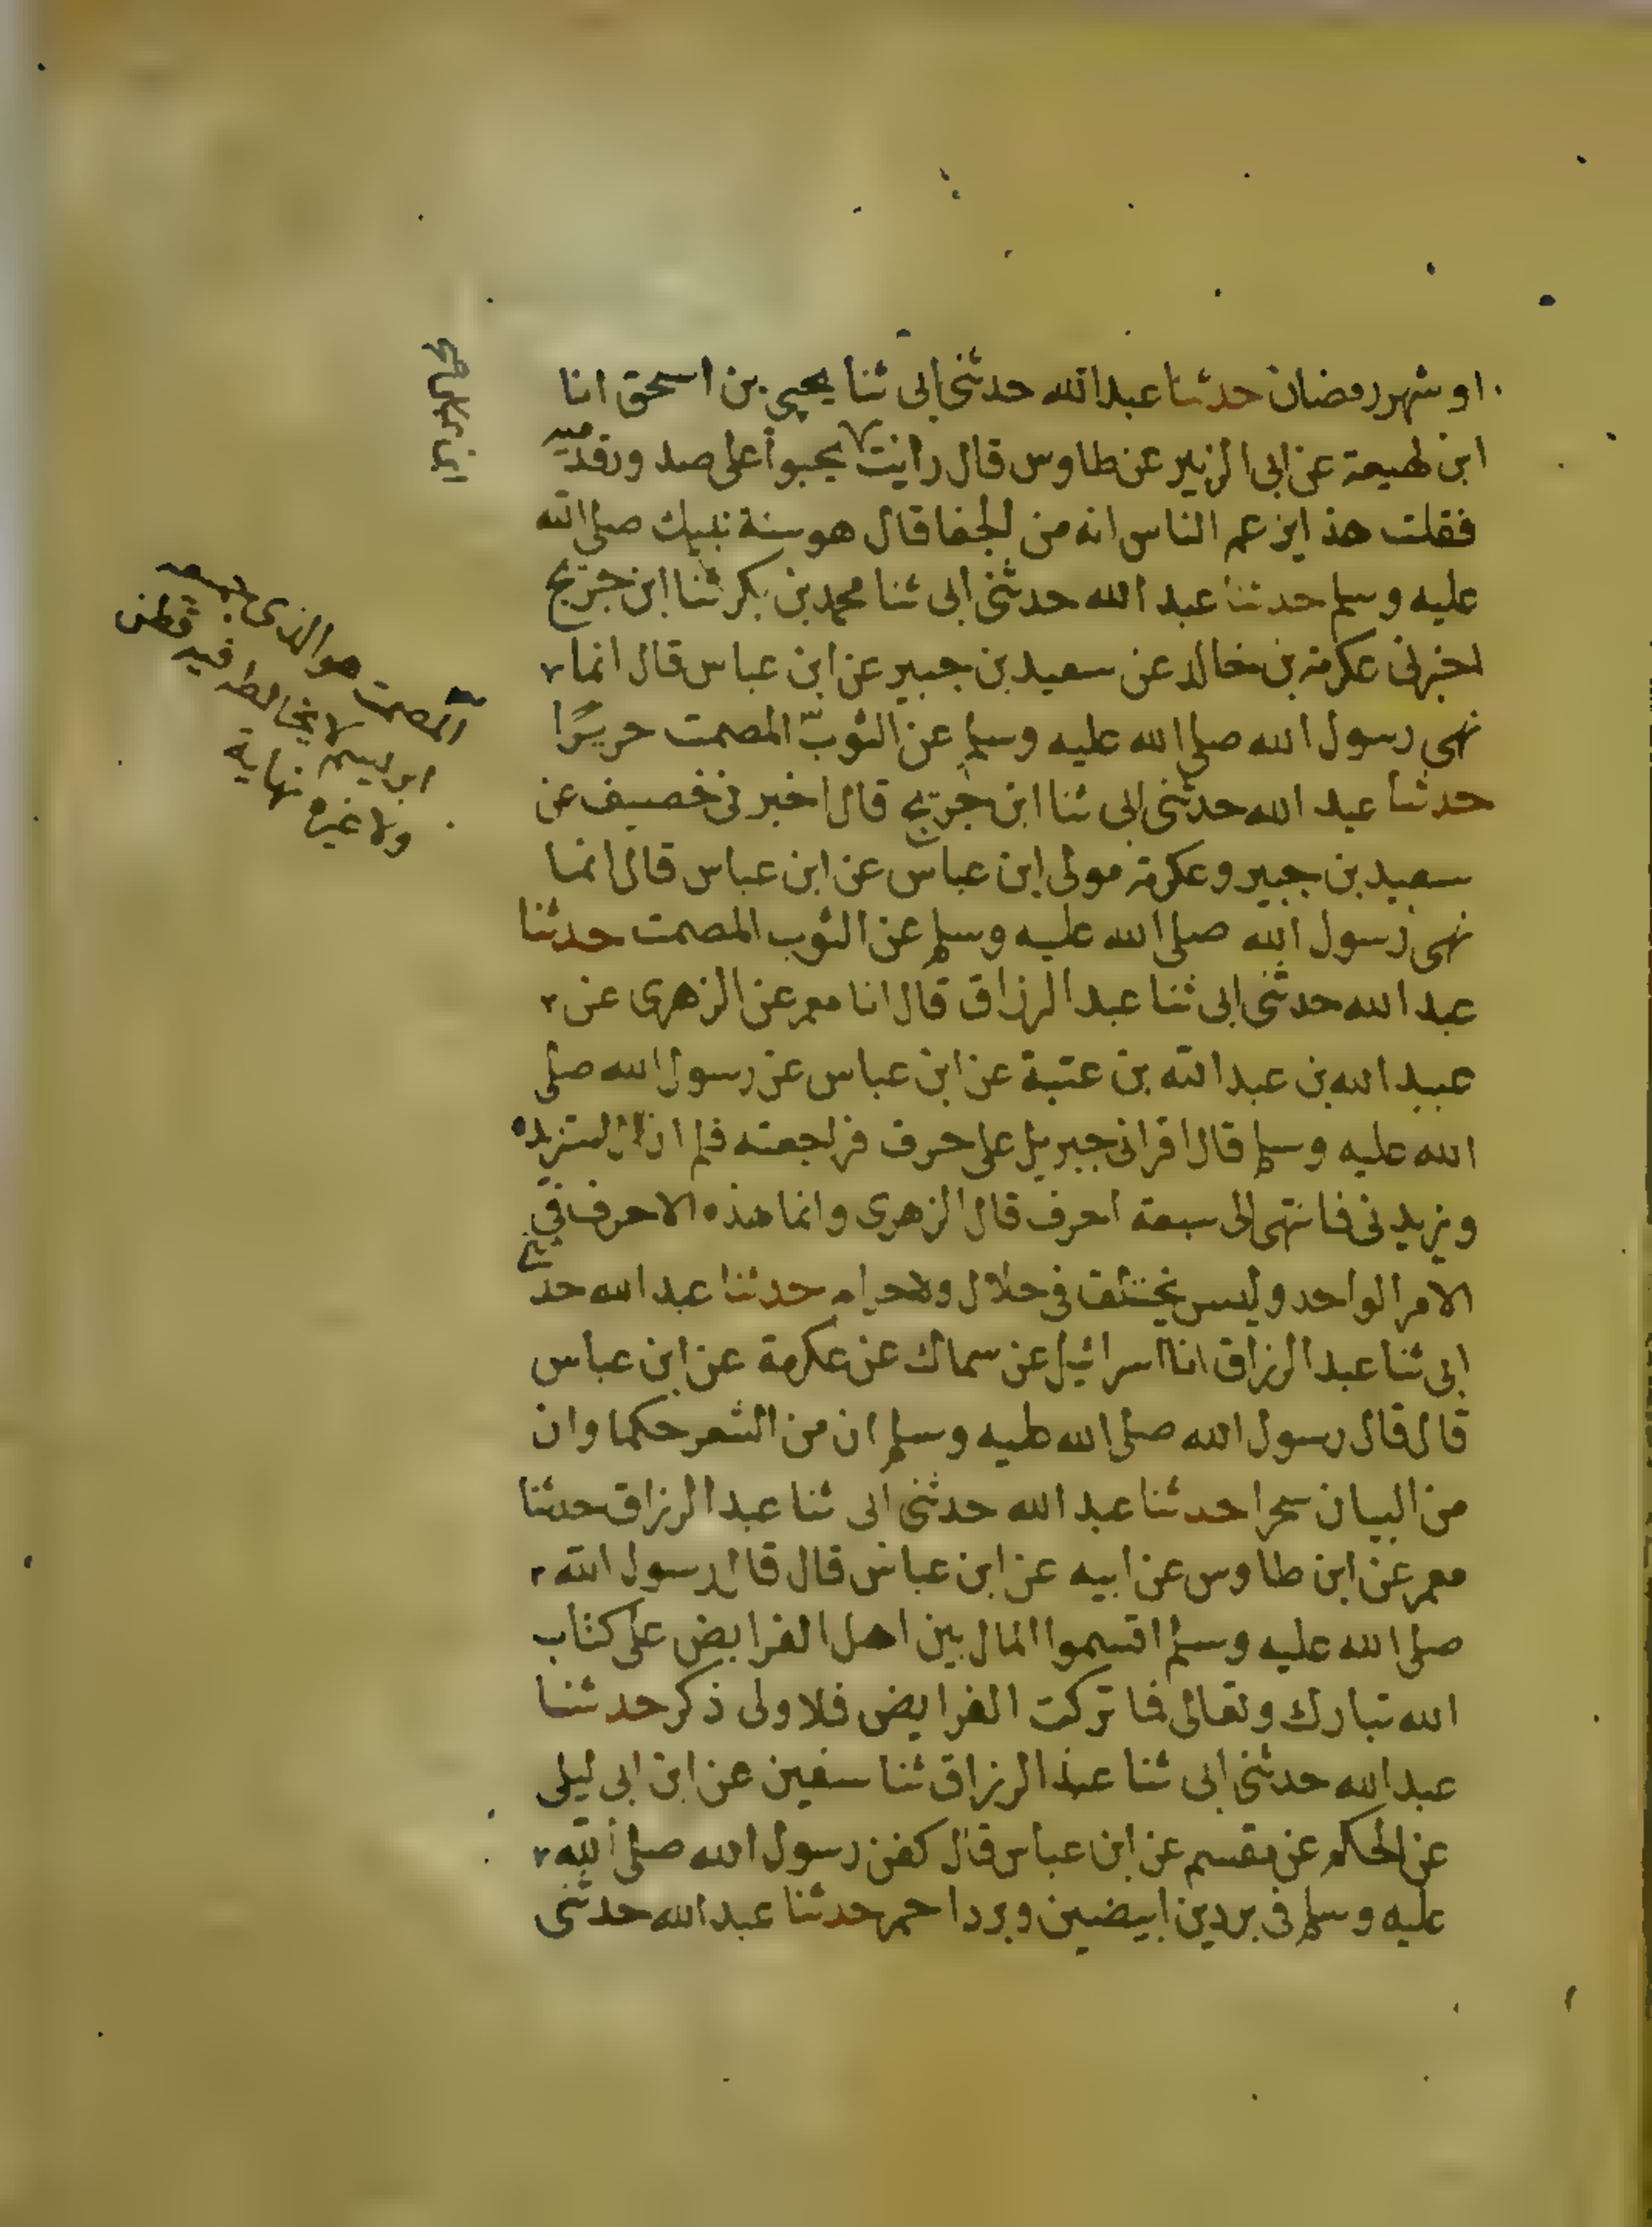 او شهر رمضان حدثنا عبد الله حدثني ابي ثنا يحيى بن اسحق انا
ابن لهيعة عن ابي الزبير عن طاوس قال رايت يحبوا على صدور قدميه
فقلت هذا يزعم الناس انه من الجفا قال هو سنة نبيك صلى الله
عليه وسلم حدثنا عبد الله حدثني ابي ثنا محمد بن بكر ثنا ابن جريج
اخبرني عكرمة بن خالد عن سعيد بن جبير عن ابن عباس قال انما
نهى رسول الله صلى الله عليه وسلم عن الثوب المصمت حريرا
حدثنا عبد الله حدثني ابي ثنا ابن جريج قال اخبرني خصيف عن
سعيد بن جبير وعكرمة مولى ابن عباس عن ابن عباس قال انما
نهى رسول الله صلى الله عليه وسلم عن الثوب المصمت حدثنا
عبد الله حدثني ابي ثنا عبد الرزاق قال انا معمر عن الزهري عن
عبيد الله بن عبد الله بن عتبة عن ابن عباس عن رسول الله صلى
الله عليه وسلم قال اقراني جبريل على حرف فراجعته فلم ازل استزيده
ويزيدني فانتهى الى سبعة احرف قال الزهري وانما هذه الاحرف في
الامر الواحد وليس يختلف في حلال ولا حرام حدثنا عبد الله حدثني
ابي ثنا عبد الرزاق انا اسرائيل عن سماك عن عكرمة عن ابن عباس
قال قال رسول الله صلى الله عليه وسلم ان من الشعر حكما وان
من البيان سحرا حدثنا عبد الله حدثني ابي ثنا عبد الرزاق حدثنا
معمر عن ابن طاوس عن ابيه عن ابن عباس قال قال رسول الله
صلى الله عليه وسلم اقسموا المال بين اهل الفرايض على كتاب
الله تبارك وتعالى فما تركت الفرايض فلاولى ذكر حدثنا
عبد الله حدثني ابي ثنا عبد الرزاق ثنا سفين عن ابن ابي ليلى
عن الحكم عن مقسم عن ابن عباس قال كفن رسول الله صلى الله
عليه وسلم في بردين ابيضين وبرد احمر حدثنا عبد الله حدثني
المصمت هو الذي جميعه
ابريسم لا يخالطه فيه قطن
ولا غيره نهاية